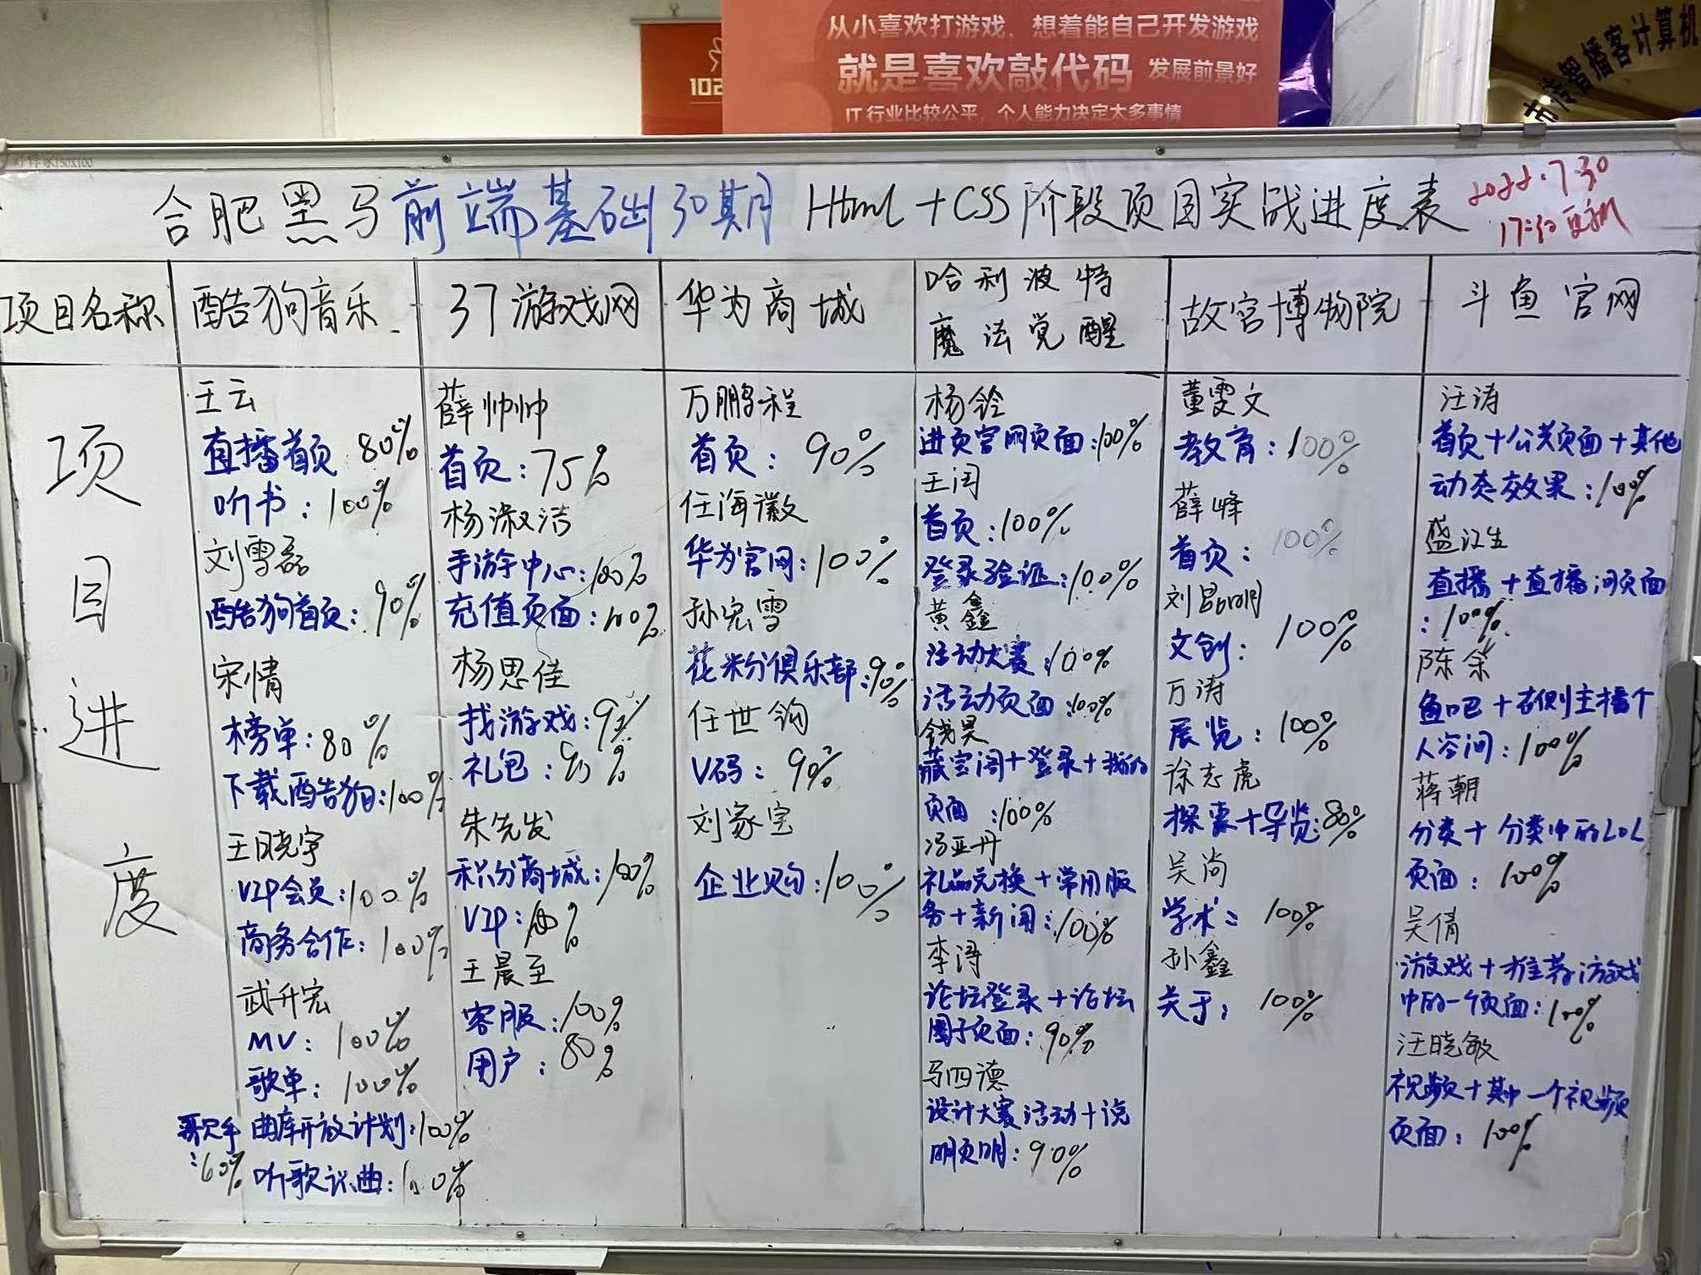 从小喜欢打游戏，想着能自己开发游戏
就是喜欢敲代码 发展前景好
IT行业比较公平，个人能力决定太多事情
102
市传智播客计算机
合肥黑马前端基础30期 Html+CSS阶段项目实战进度表
2022.7.30
项目名称
酷狗音乐
37游戏网
华为商城
哈利波特
魔法觉醒
故宫博物院
斗鱼官网
项目进度
王云
直播首页 80%
听书：100%
刘雪磊
酷狗首页：90%
宋情
榜单：80%
下载酷狗：100%
王晓宇
VIP会员：100%
商务合作：100%
武升宏
MV：100%
歌单：100%
歌手：60%
曲库开放计划：100%
听歌识曲：100%
薛帅帅
首页：75%
杨淑洁
手游中心：100%
充值页面：100%
杨思佳
找游戏：
礼包：
朱先发
积分商城：100%
VIP：
王晨至
客服：100%
用户：80%
万鹏程
首页：90%
任海徽
华为官网：100%
孙宏雪
花粉俱乐部：90%
任世钧
V码：90%
刘家宝
企业购：100%
杨铃
进页官网页面：100%
王闯
首页：100%
登录验证：100%
黄鑫
活动大赛：100%
活动页面：100%
钱昊
藏宝阁+登录+我的
页面：100%
冯亚丹
礼品兑换+常用服
务+新闻：100%
李涛
论坛登录+论坛
圈子页面：90%
马四德
设计大赛活动+说
明页明：90%
董雯文
教育：100%
薛峰
首页：100%
刘昌明
文创：100%
万涛
展览：100%
徐志虎
探索+导览：80%
吴尚
学术：100%
孙鑫
关于：100%
汪涛
首页+公共页面+其他
动态效果：100%
盛江生
直播+直播间页面
：100%
陈余
鱼吧+右侧主播个
人空间：100%
蒋朝
分类+分类中的LOL
页面：100%
吴倩
游戏+推荐游戏
中的一个页面：100%
汪晓敏
视频+其中一个视频
页面：100%